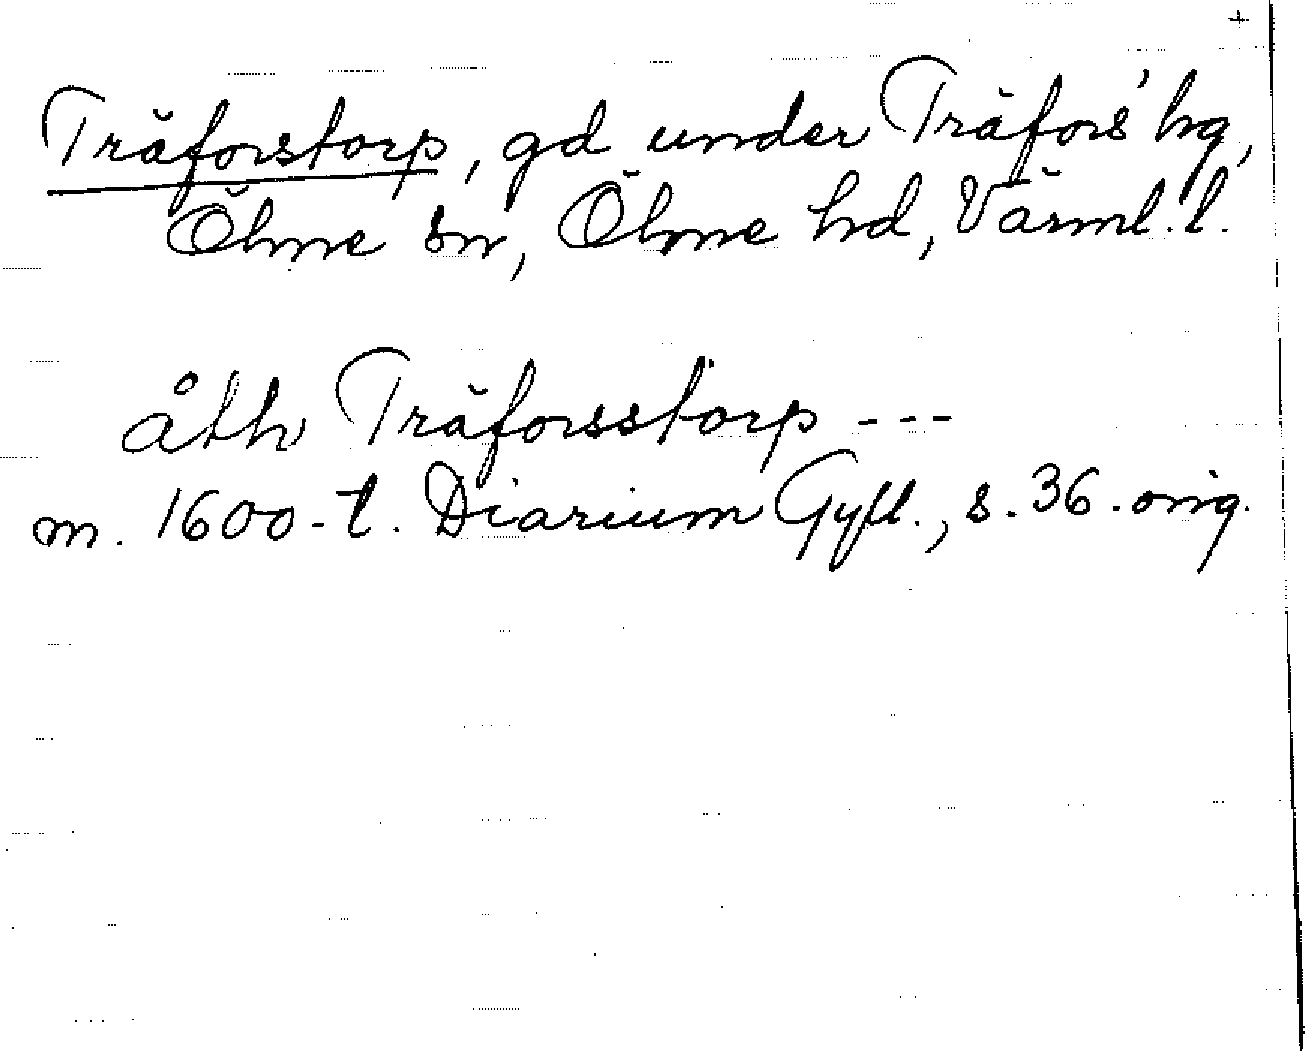 +
Träforstorp, gd under Träfors' hg,
Ölme sn, Ölme hd, Värml. l.
åth Träforsstorp ---
m. 1600-t. Diarium Gyll., s. 36. orig.